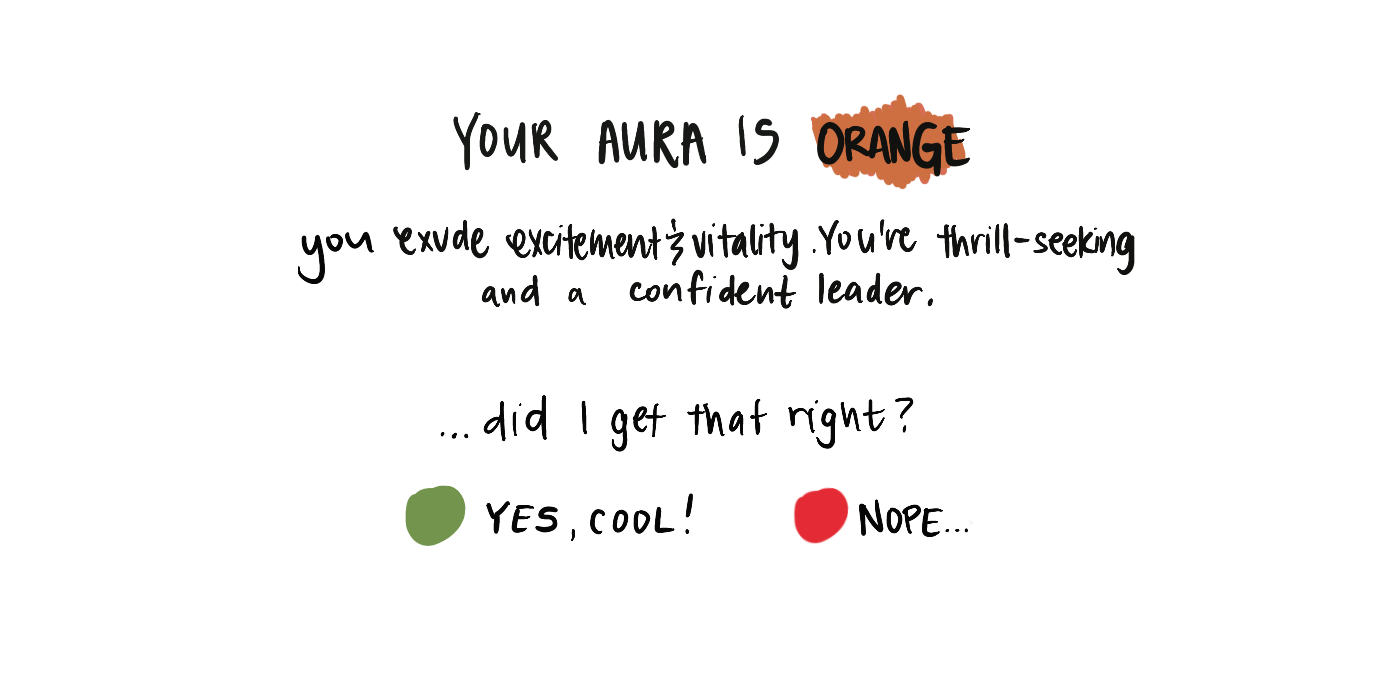 YOUR AURA IS ORANGE
you exude excitement & vitality. You're thrill-seeking
and a confident leader.
...did I get that right?
YES, COOL! NOPE...